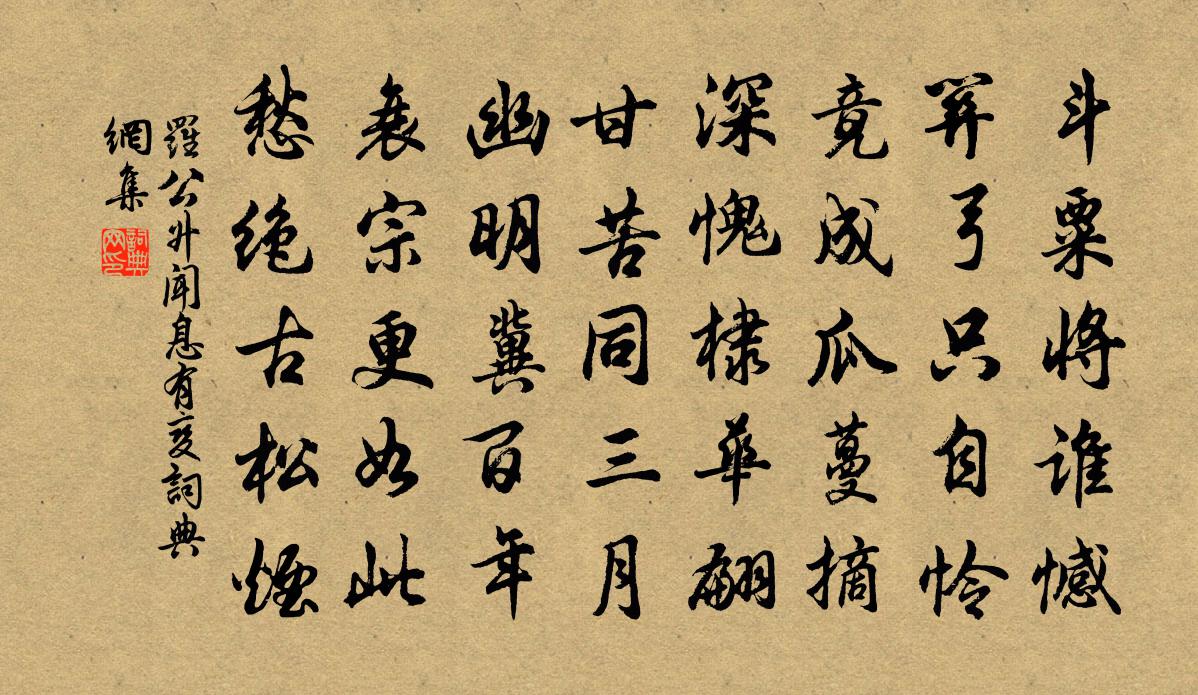 斗粟將誰憾
關弓只自怜
竟成瓜蔓摘
深愧棣華翩
甘苦同三月
幽明冀百年
衰宗更如此
愁绝古松煙
羅公升聞息有变詞典
網集
詞典網印